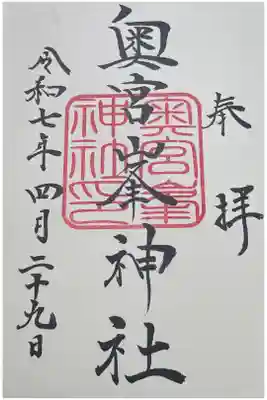 奉拝
奥宮峯神社
奥宮峯神社印
令和七年四月二十九日